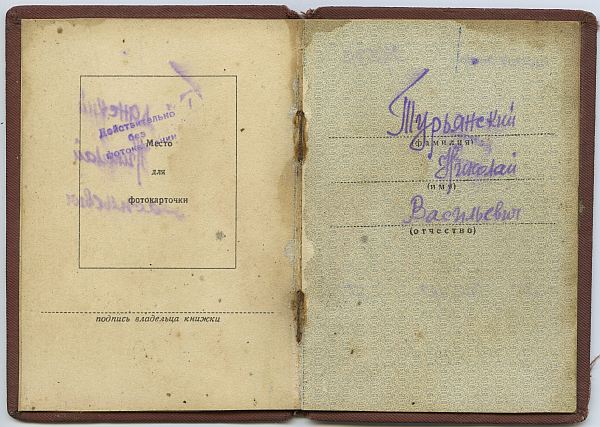 Действительно
без
фотокарточки
Место
для
фотокарточки
подпись владельца книжки
Турьянский
(фамилия)
Николай
(имя)
Васильевич
(отчество)